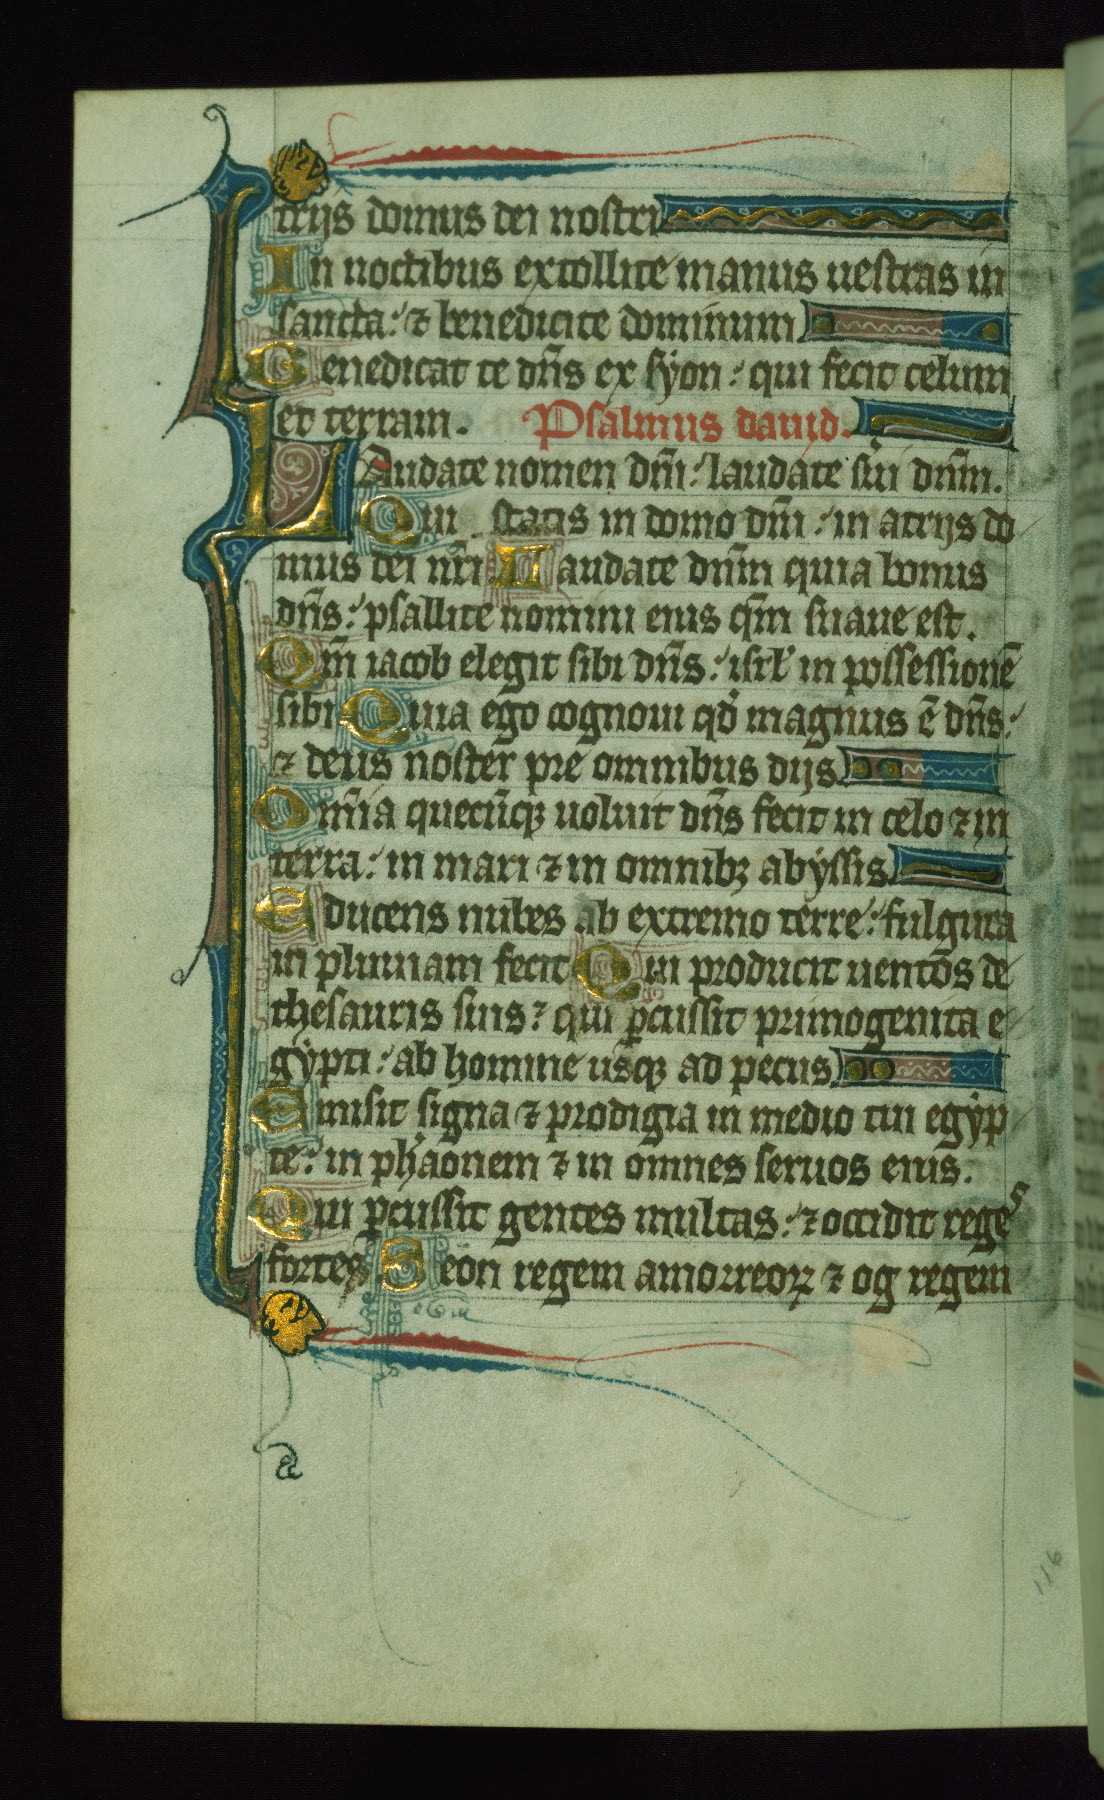 trijs domus dei nostri
In noctibus extollite manus uestras in
sancta: ⁊ benedicite dominum
Benedicat te dn̄s ex syon: qui fecit celum
et terram. Psalmus dauid.
LAudate nomen dn̄i: laudate s̄ui dn̄m.
Qui statis in domo dn̄i: in atrijs do
mus dei nr̄i Laudate dn̄m quia bonus
dn̄s: psallite nomini eius qm̄ suaue est.
Qm̄ iacob elegit sibi dn̄s: isrl' in possessionē
sibi Quia ego cognoui qđ magnus ē dn̄s:
⁊ deus noster pre omnibus dijs
Om̄ia quecūqꝫ uoluit dn̄s fecit in celo ⁊ in
terra: in mari ⁊ in omnibꝫ abyssis
Educens nubes ab extremo terre: fulgura
in pluuiam fecit Qui producit uentos de
thesauris suis: qui ꝑcussit primogenita e
gypti: ab homine usqꝫ ad pecus
Emisit signa ⁊ prodigia in medio tui egyp
te: in phaonem ⁊ in omnes seruos eius.
Qui ꝑcussit gentes multas: ⁊ occidit reges
fortes Seon regem amorreoꝝ ⁊ og regem
116